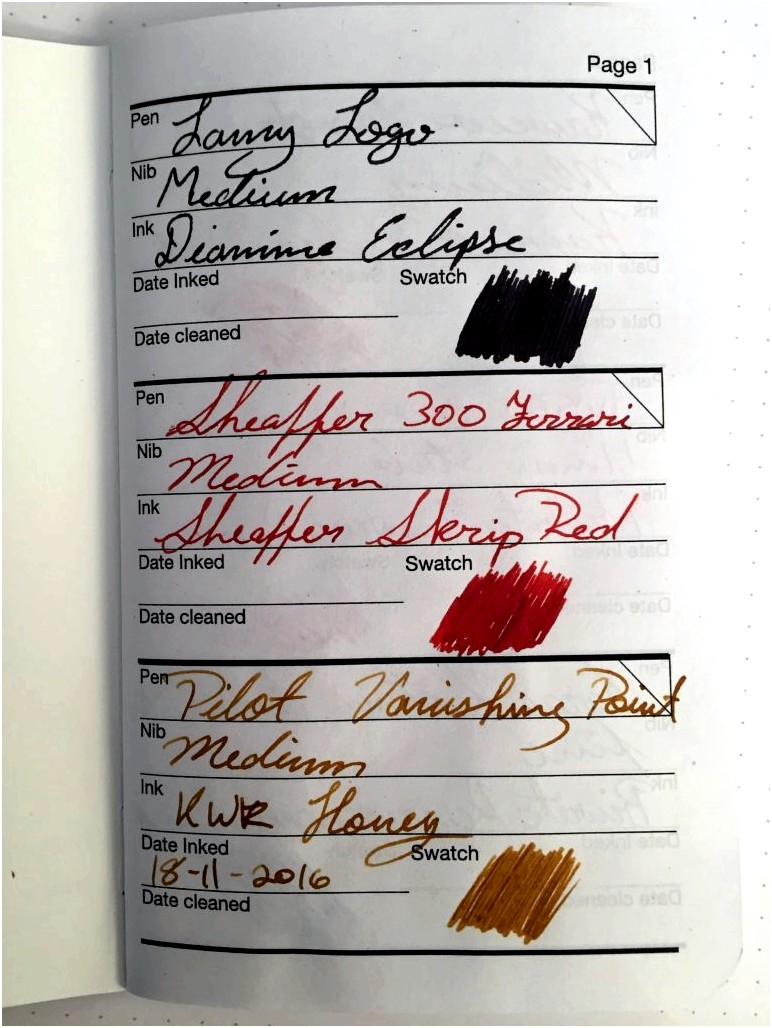 Page 1
Pen Lamy Logo
Nib Medium
Ink Diamine Eclipse
Date Inked Swatch
Date cleaned
Pen Sheaffer 300 Ferrari
Nib Medium
Ink Sheaffer Skrip Red
Date Inked Swatch
Date cleaned
Pen Pilot Vanishing Point
Nib Medium
Ink KWZ Honey
Date Inked Swatch
18-11-2016
Date cleaned